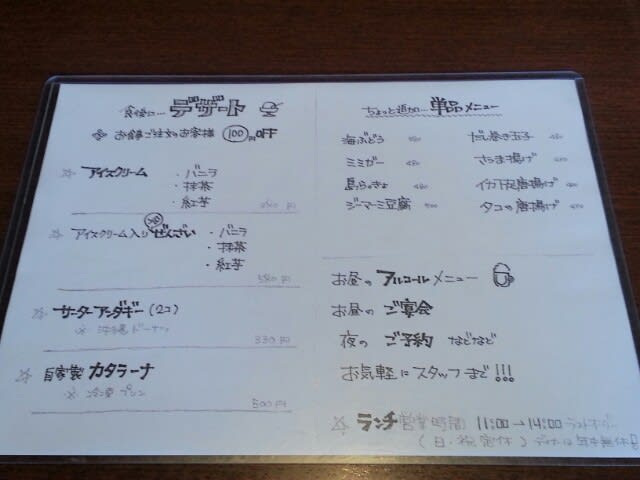 食後に… デザート
お食事ご注文のお客様 100円引
☆ アイスクリーム ・バニラ
・抹茶
・紅芋
☆ アイスクリーム入り ぜんざい ・バニラ
・抹茶
・紅芋
580円
☆ サーターアンダギー (2コ)
※ 沖縄ドーナツ
330円
☆ 自家製 カタラーナ
※ 冷凍プリン
500円
ちょっと追加… 単品メニュー
海ぶどう
だし巻き玉子
ミミガー
さつま揚げ
島らっきょ
イカ下足唐揚げ
ジーマーミ豆腐
タコの唐揚げ
お昼の アルコールメニュー
お昼の ご宴会
夜の ご予約 などなど
お気軽にスタッフまで!!!
☆ ランチ営業時間
(日・祝定休)